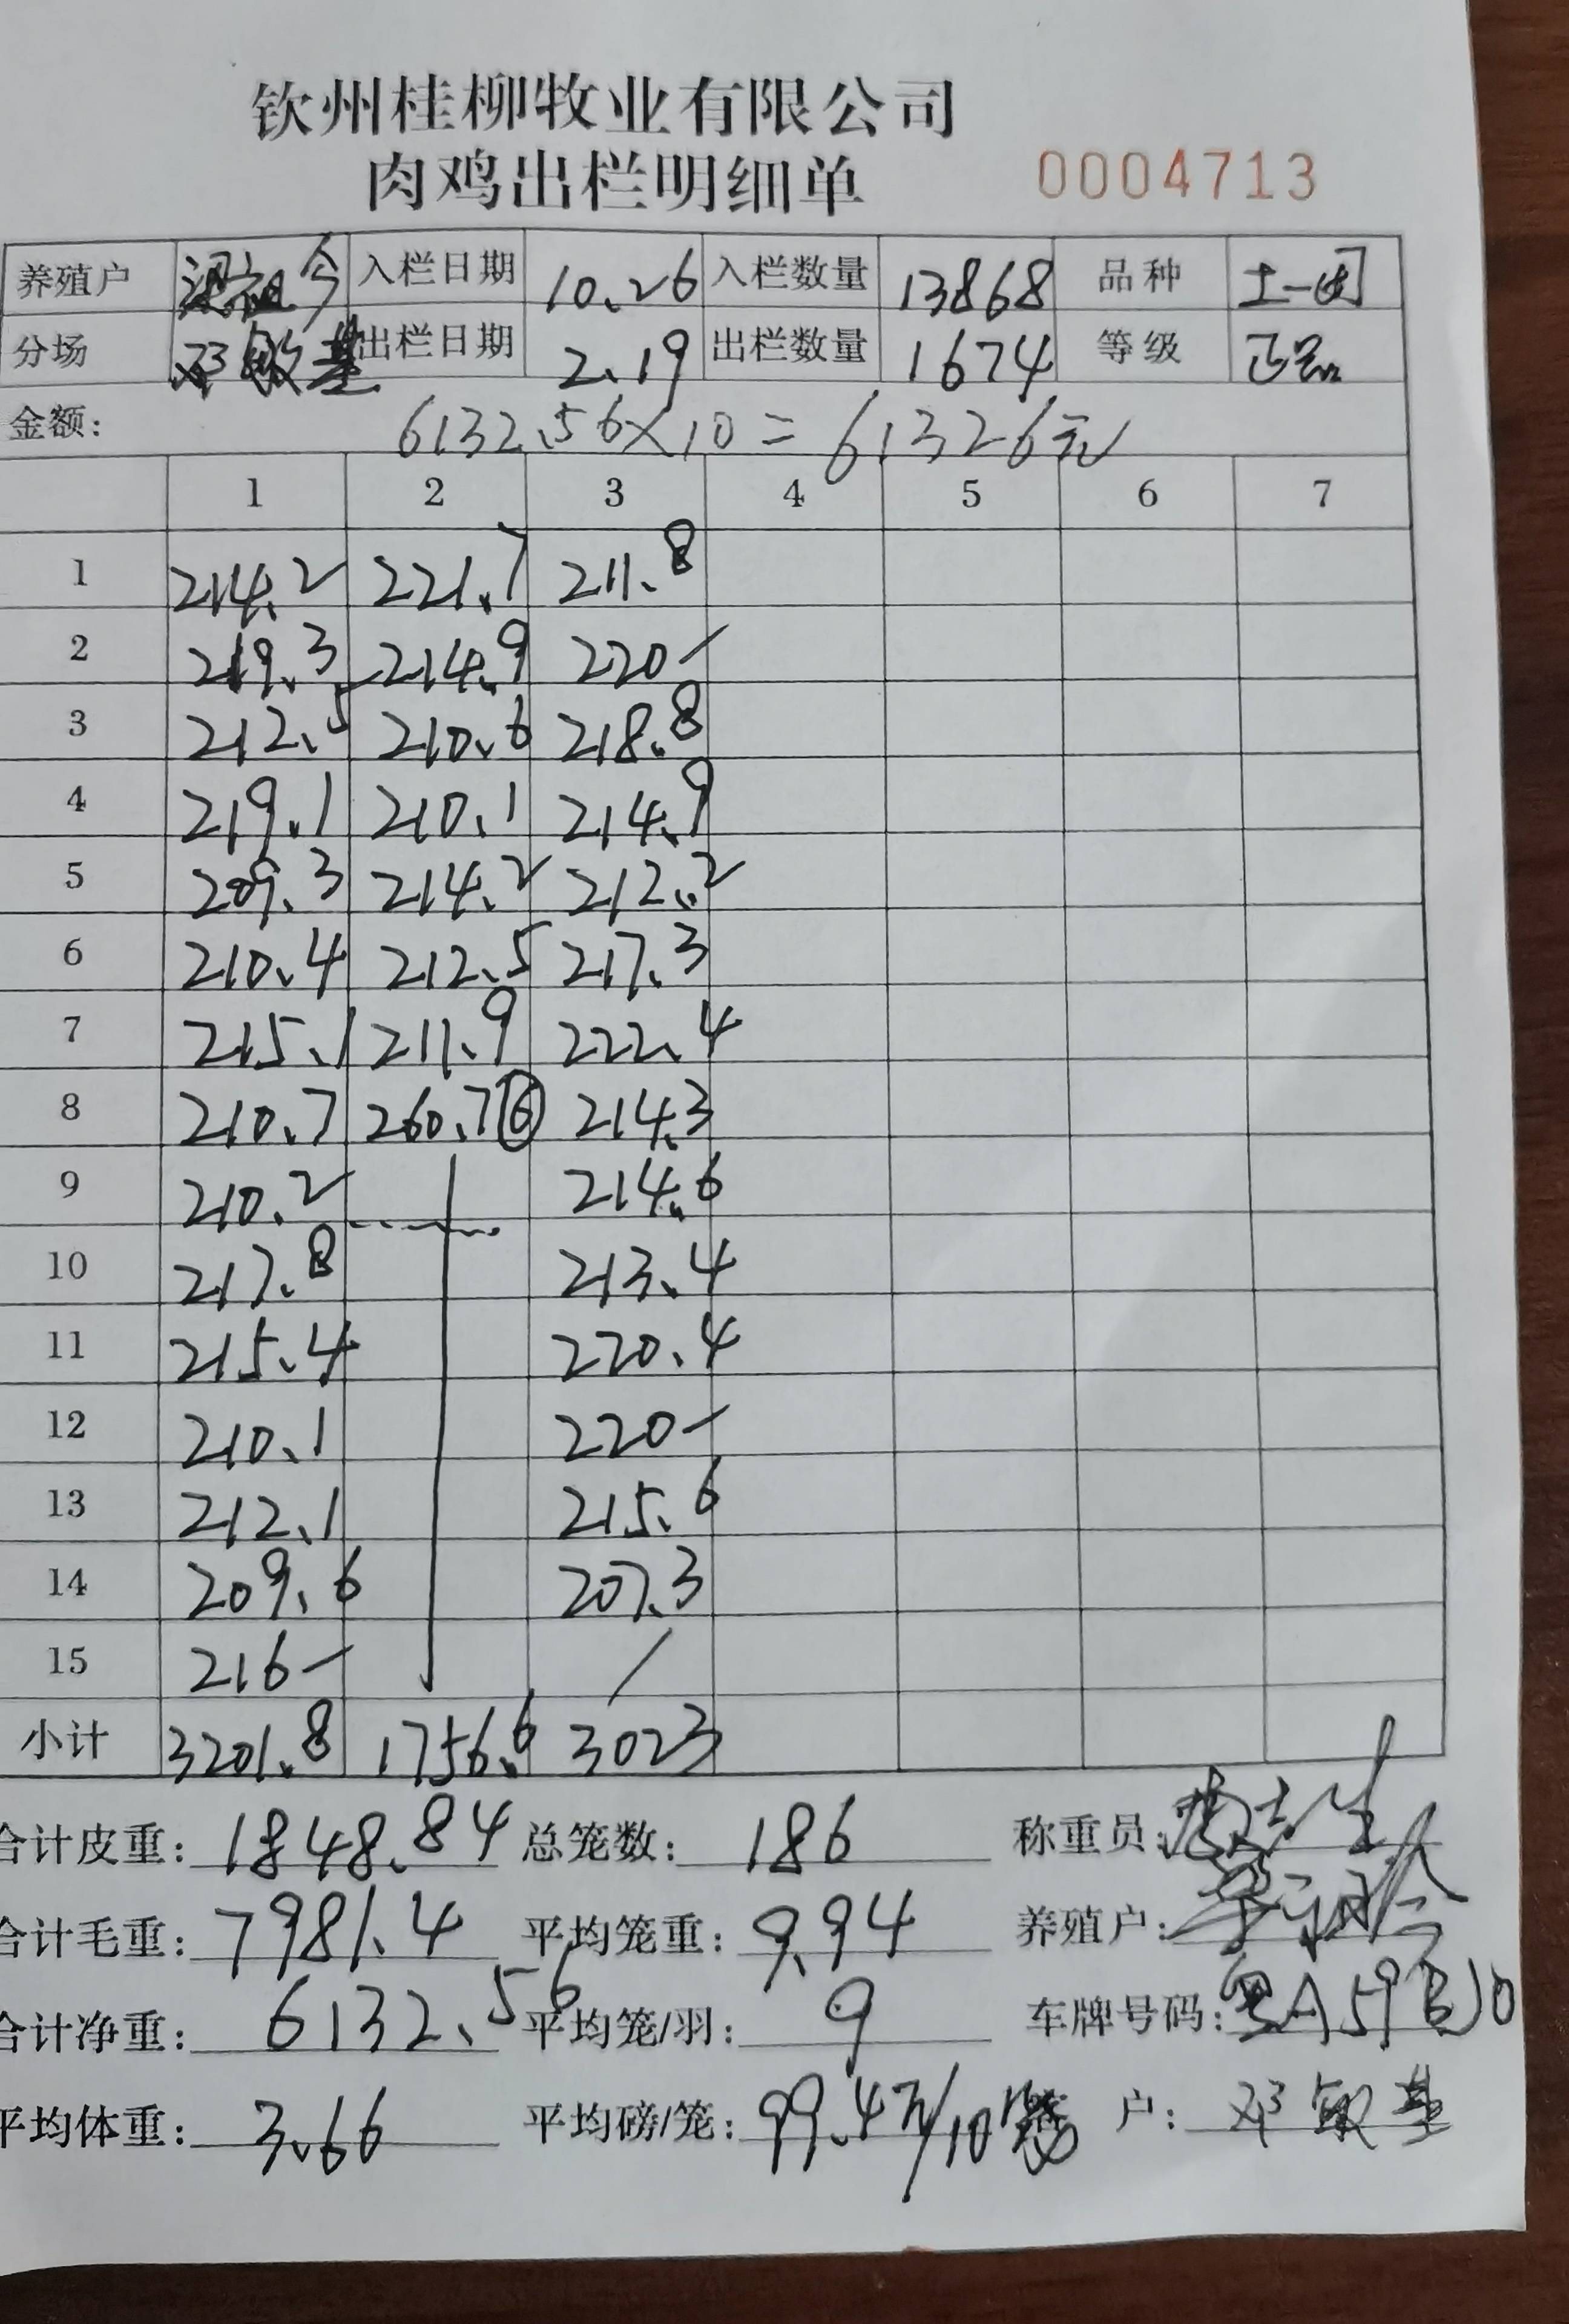 钦州桂柳牧业有限公司
肉鸡出栏明细单 0004713
养殖户 梁祖今 入栏日期 10.26 入栏数量 13868 品种 土一
分场 邓敏基 出栏日期 2.19 出栏数量 1674 等级 正品
金额: 6132.56×10=61326元
1 2 3 4 5 6 7
1 214.2 221.7 211.8
2 219.3 214.9 220-
3 212.5 210.6 218.8
4 219.1 210.1 214.9
5 209.3 214.2 212.2
6 210.4 212.5 217.3
7 215.1 211.9 222.4
8 210.7 260.7⑥ 214.3
9 210.2 214.6
10 217.8 213.4
11 215.4 220.4
12 210.1 220-
13 212.1 215.6
14 209.6 207.3
15 216- /
小计 3201.8 1756.6 3023
合计皮重: 1848.84 总笼数: 186 称重员:
合计毛重: 7981.4 平均笼重: 9.94 养殖户:
合计净重: 6132.56 平均笼/羽: 9 车牌号码: 粤A59BJ0
平均体重: 3.66 平均磅/笼: 99.4 户: 邓敏基